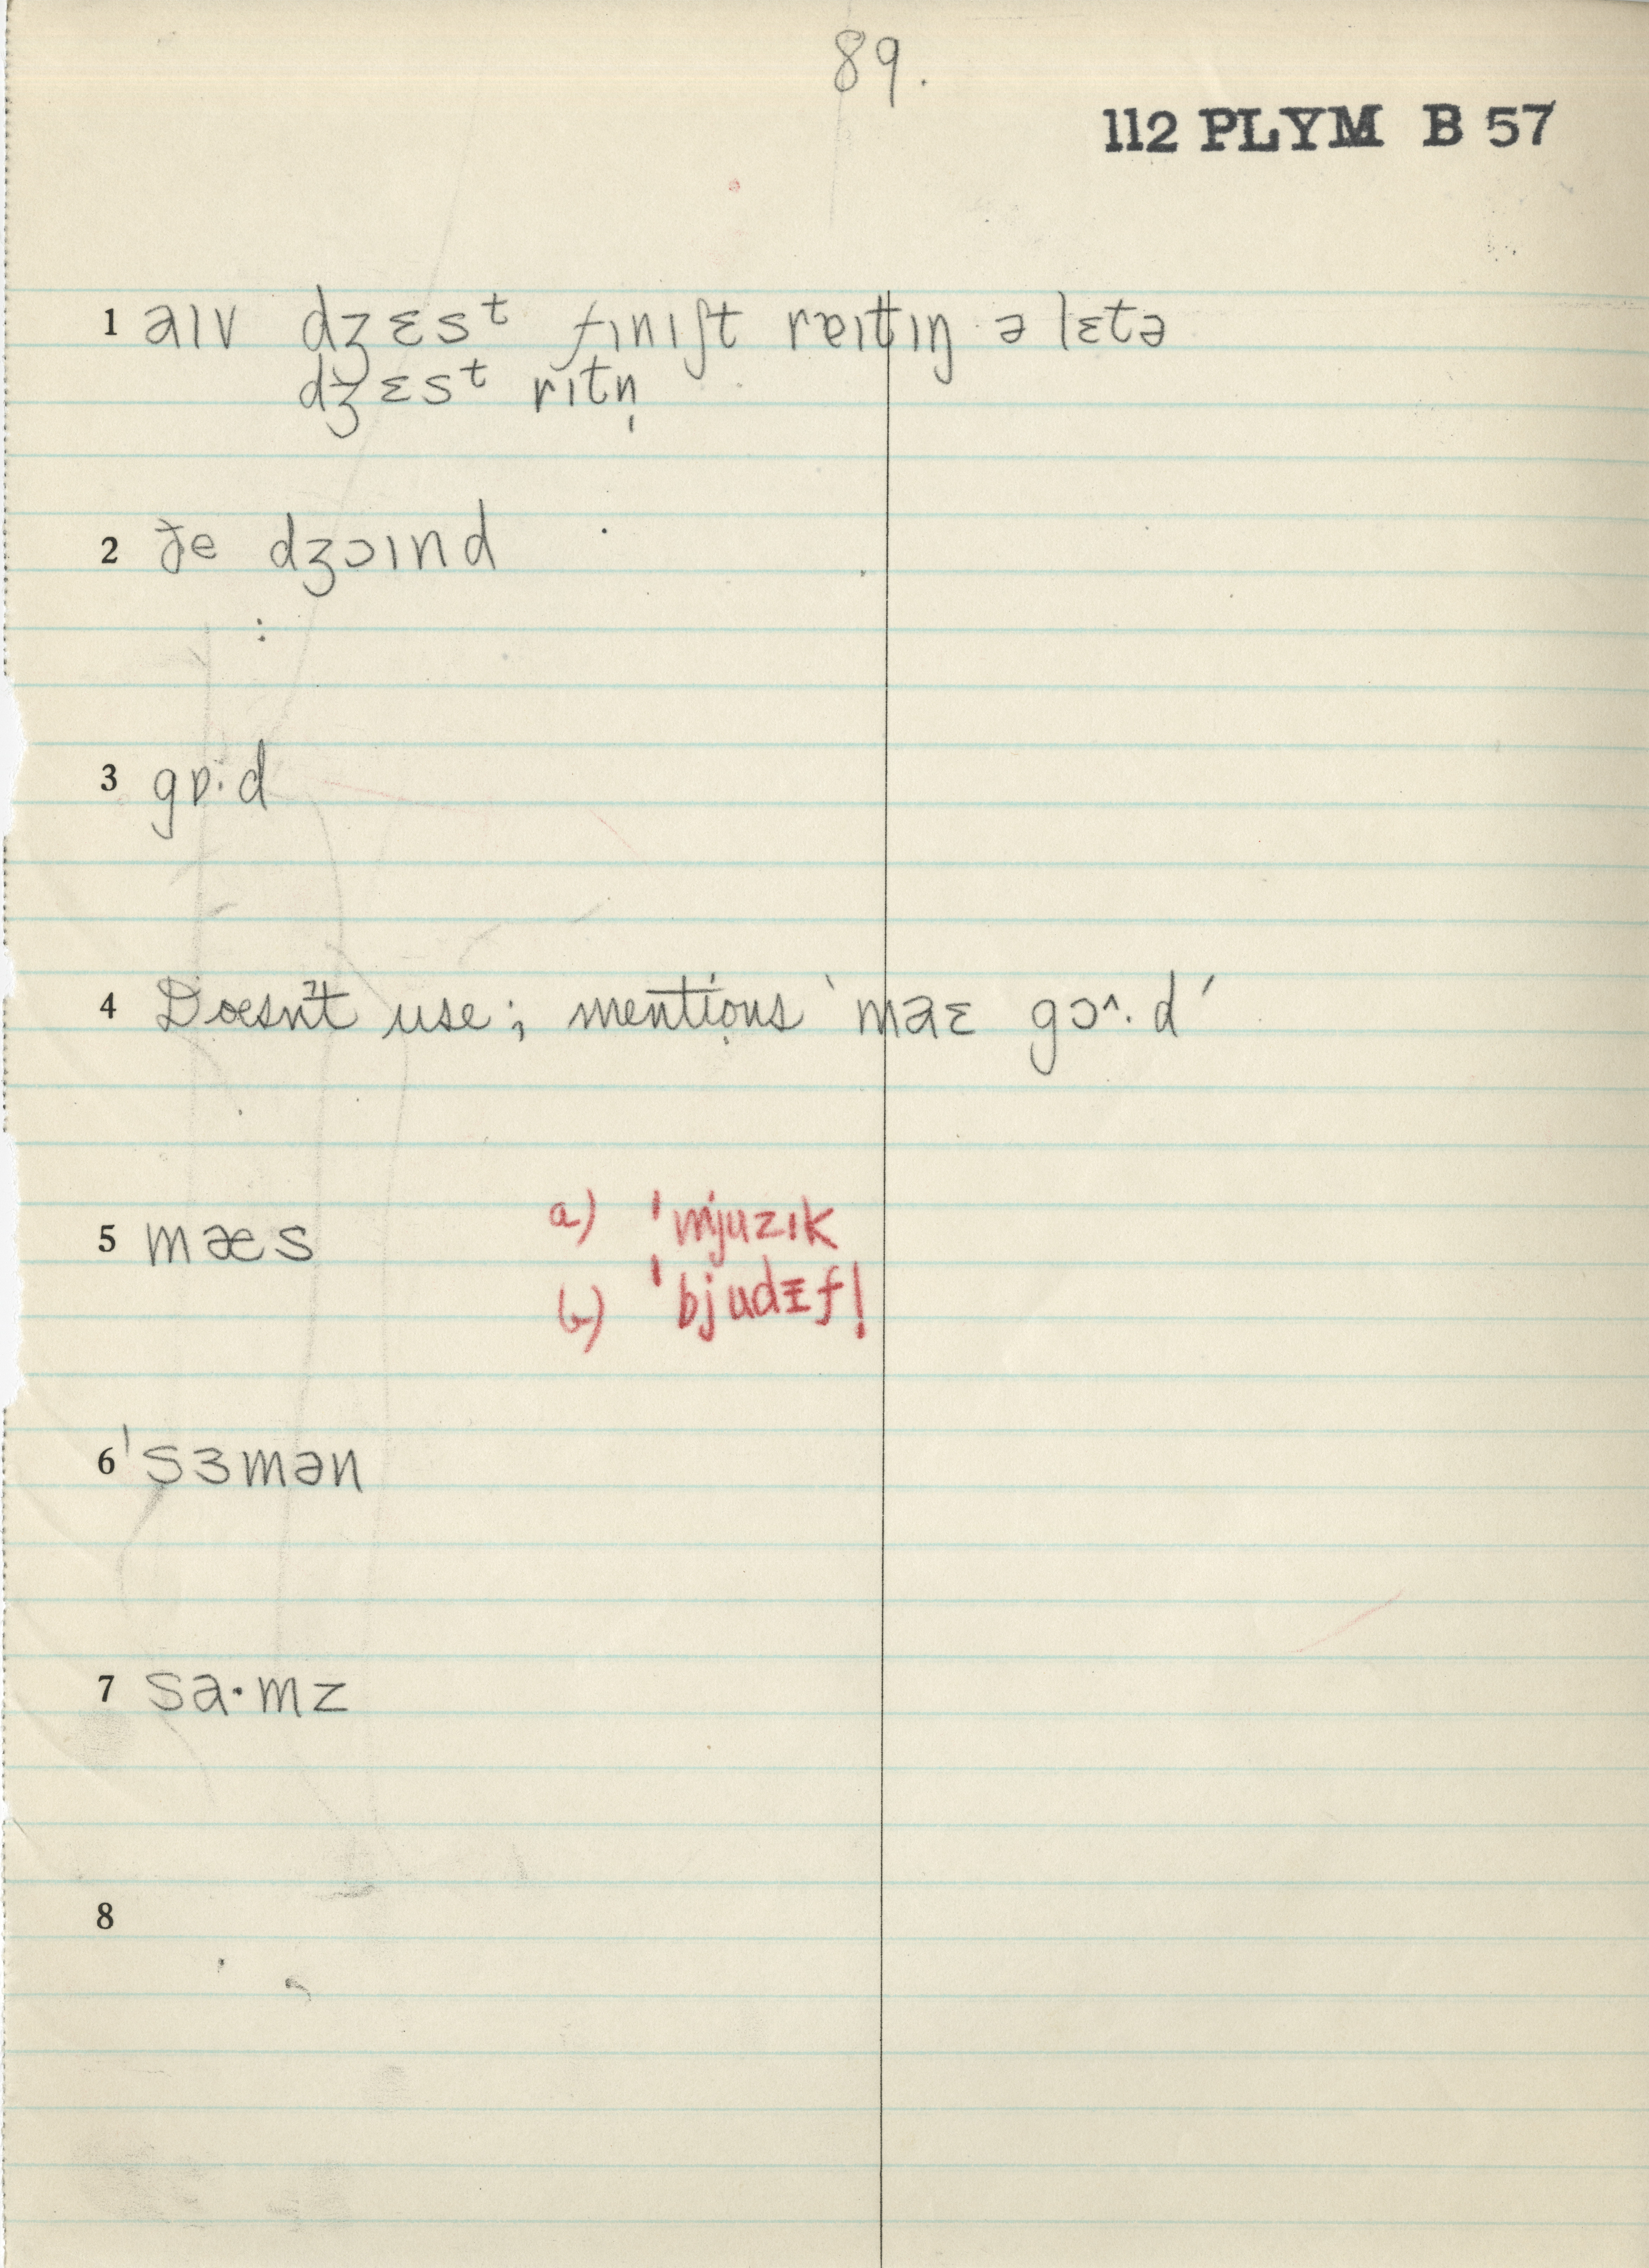 89.
112 PLYM B 57
1 aɪv dʒɛsᵗ fɪnɪʃt rɐɪtɪŋ ə lɛtə
dʒɛsᵗ rɪtn̩
2 ðe dʒɔɪnd
3 gɒ·d
4 Doesn't use; mentions 'maɛ gɔ^·d'
5 mæs a) 'mjuzɪk
b) 'bjudɪf!
6 'sɜmən
7 sa·mz
8